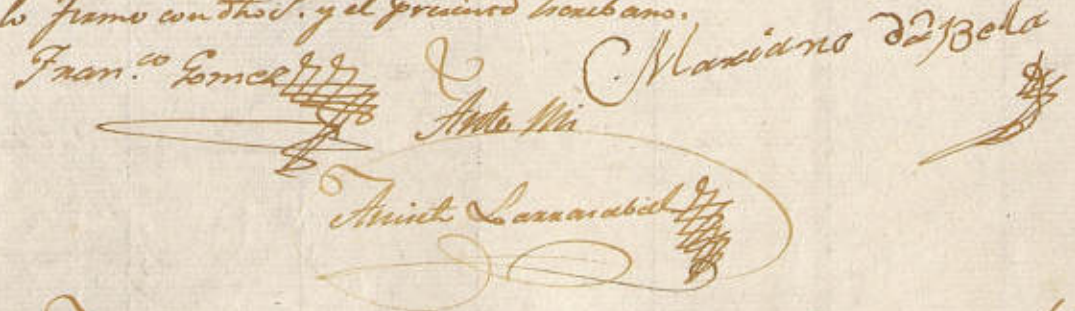 lo firmo con dhoS. y el presente Escribano.
Fran.co Gomez
Mariano
Ante Mi
Larrasabal